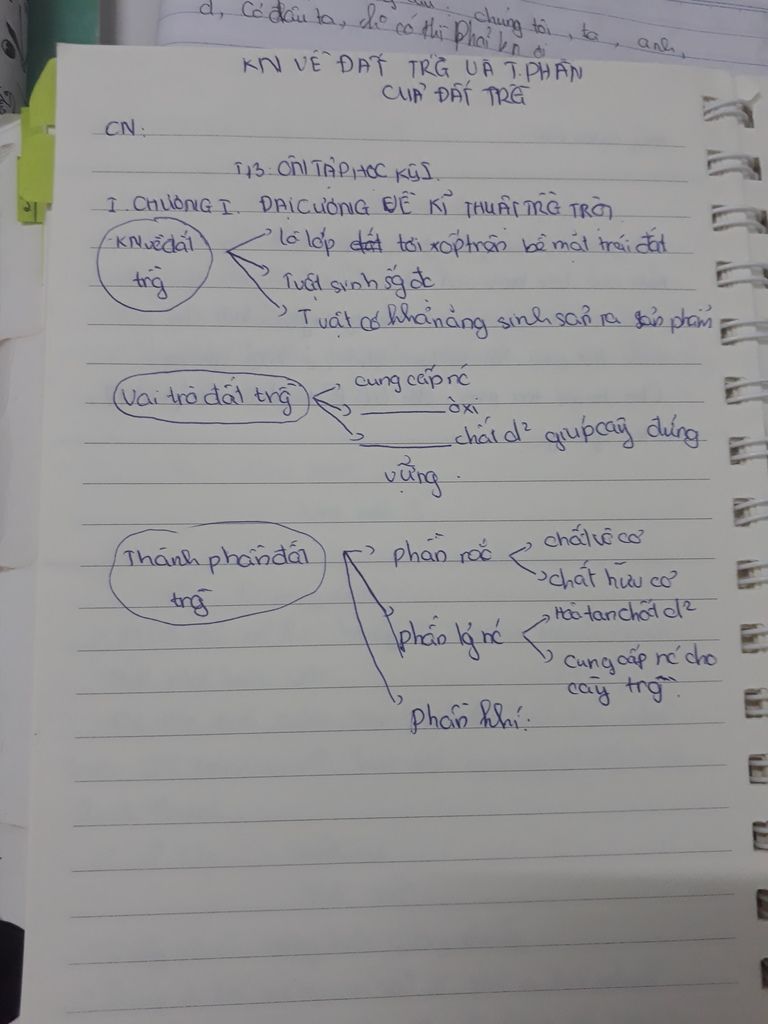 d, Có đâu ta, chớ có thì phải kn ơ
chúng tôi, ta, anh,
KN VỀ ĐẤT TRG VÀ T.PHẦN
CUẢ ĐẤT TRG
CN:
ÔN TẬP HỌC KỲ I.
I. CHƯƠNG I. ĐẠI CƯƠNG VỀ KĨ THUẬT TRG TRỌT
KN về đất trg
là lớp đất tơi xốp trên bề mặt trái đất
T vật sinh sg đc
T vật có khả năng sinh sản ra sản phẩm
Vai trò đất trg
cung cấp nc
_____ ôxi
_____ chất d² giúp cây đứng
vững.
Thành phần đất trg
phần rắc
chất vô cơ
chất hữu cơ
phần lỷ nc
Hòa tan chất d²
cung cấp nc cho
cây trg.
phần khí.